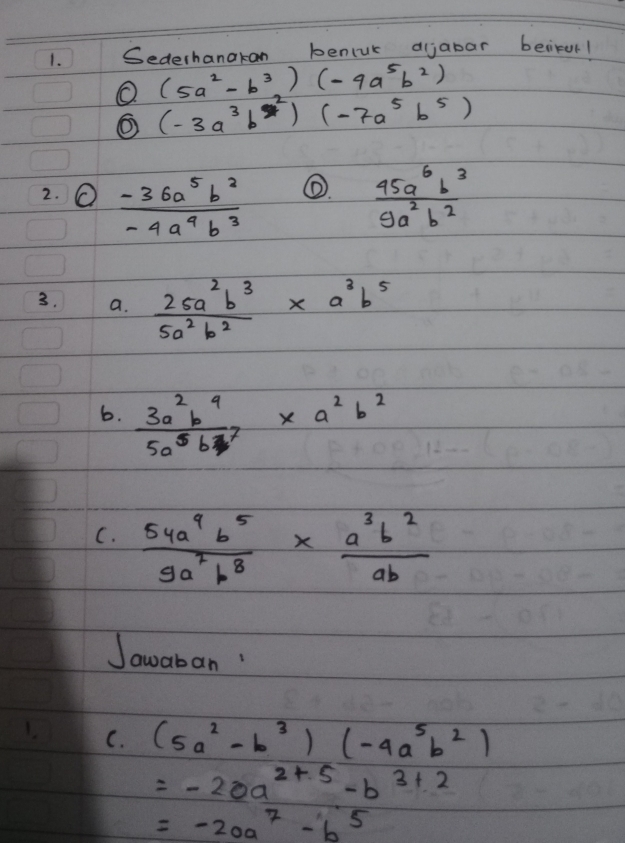 1. Sederhanakan bentuk aljabar berikut!
C (5a² - b³) (-4a⁵b²)
D (-3a³b²) (-7a⁵b⁵)
2. C -36a⁵b² / -4a⁴b³ D. 45a⁶b³ / 9a²b²
3. a. 25a²b³ / 5a²b² × a³b⁵
b. 3a²b⁹ / 5a⁵b⁷ × a²b²
c. 54a⁹b⁵ / 9a⁷b⁸ × a³b² / ab
Jawaban :
1. c. (5a² - b³) (-4a⁵b²)
= -20a²⁺⁵ - b³⁺²
= -20a⁷ - b⁵